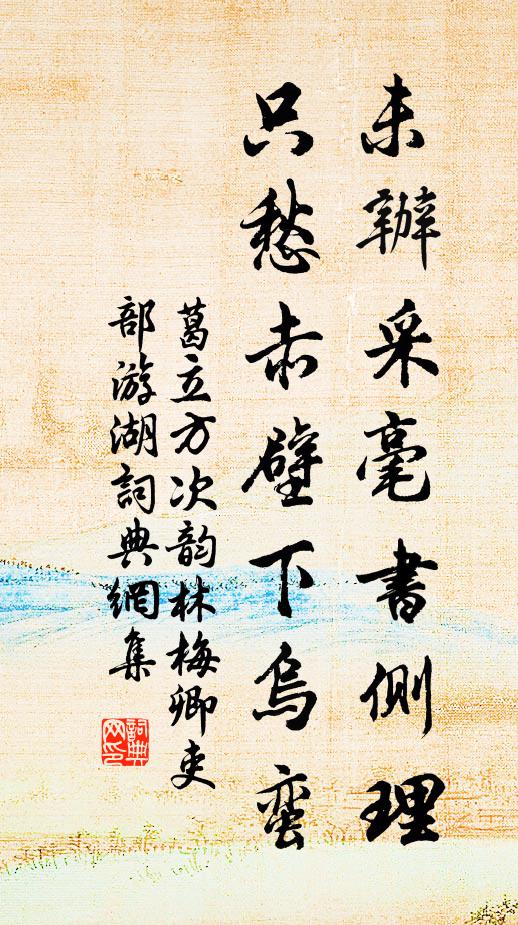 未辦采毫書侧理
只愁赤壁下烏蛮
葛立方次韵林梅卿吏
部游湖詞典網集
詞典
网印